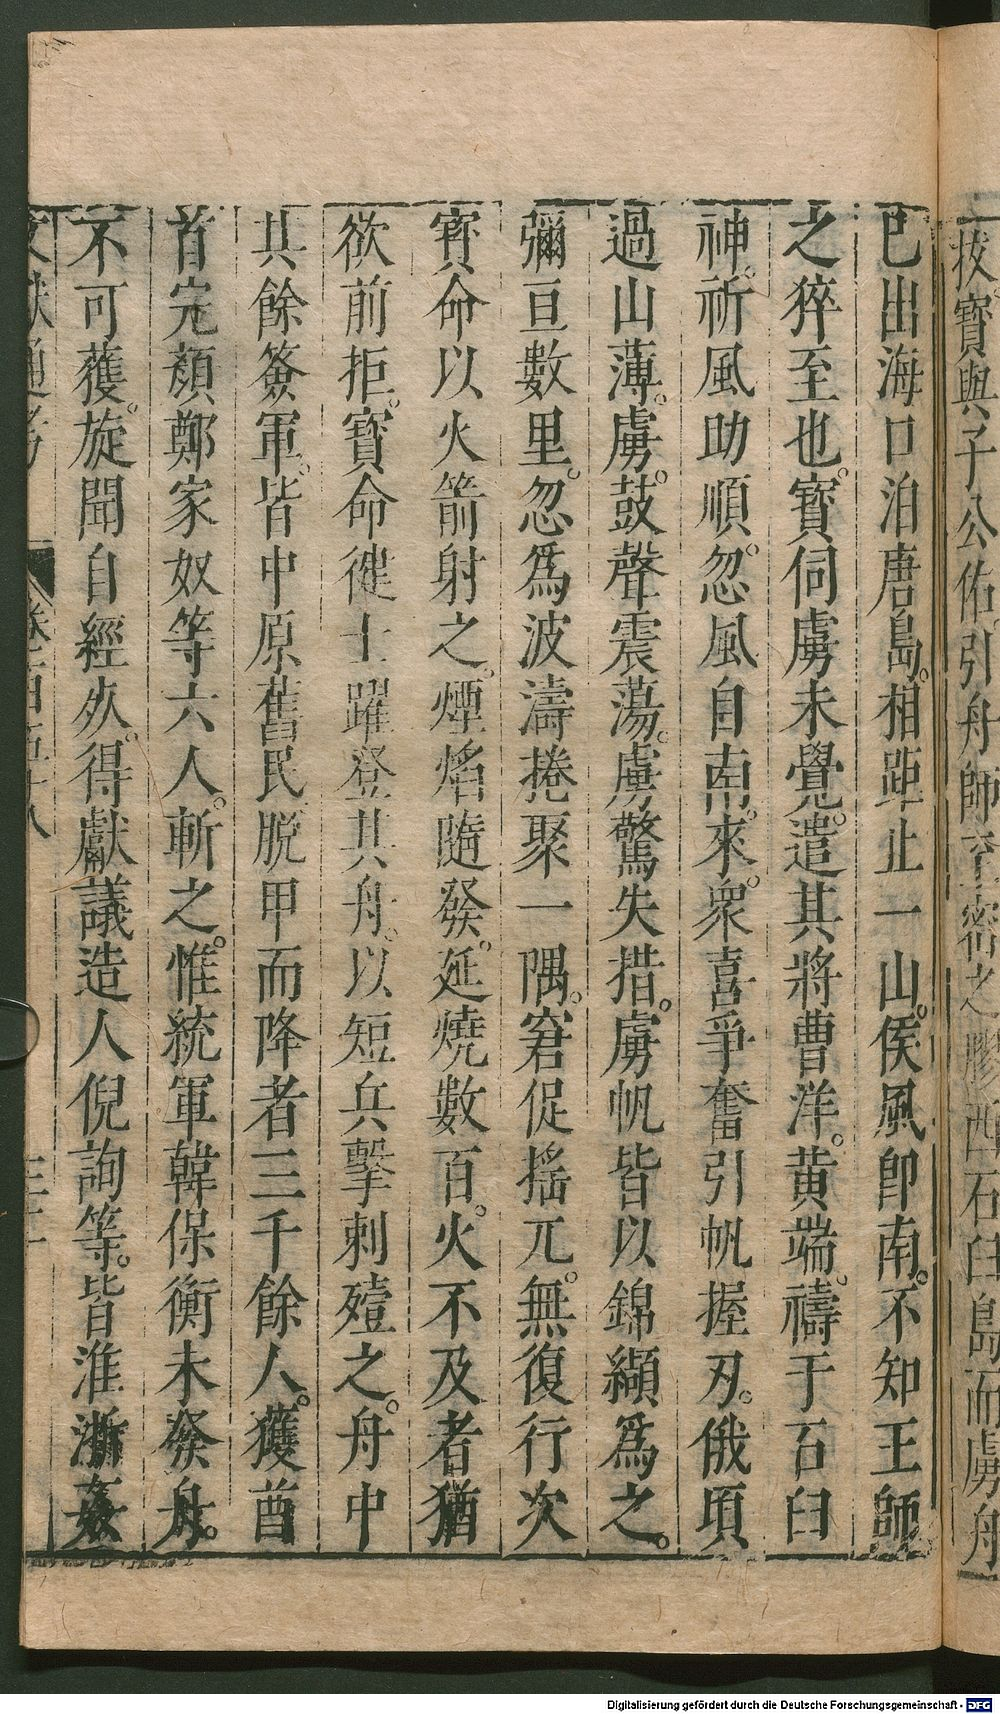 拔。寶與子公佑。引舟師至密之膠西石臼島。而虜舟
已出海口泊唐島。相距止一山。俟風卽南。不知王師
之猝至也。寶伺虜未覺。遣其將曹洋。黃端。禱于石臼
神。祈風助順。忽風自南來。衆喜爭奮引帆握刃。俄頃
過山薄虜。鼓聲震蕩。虜驚失措。虜帆皆以錦纈爲之。
彌亘數里。忽爲波濤捲聚一隅。窘促搖兀。無復行次
寶命以火箭射之。煙焰隨發。延燒數百。火不及者猶
欲前拒。寶命徤士躍登其舟。以短兵擊刺殪之。舟中
其餘簽軍。皆中原舊民脱甲而降者三千餘人。獲酋
首完顏鄭家奴等六人。斬之。惟統軍韓保衡未發舟。
不可獲。旋聞自經死。得獻議造人倪詢等。皆淮浙姦
文獻通考 卷一百五十八
Digitalisierung gefördert durch die Deutsche Forschungsgemeinschaft - DFG